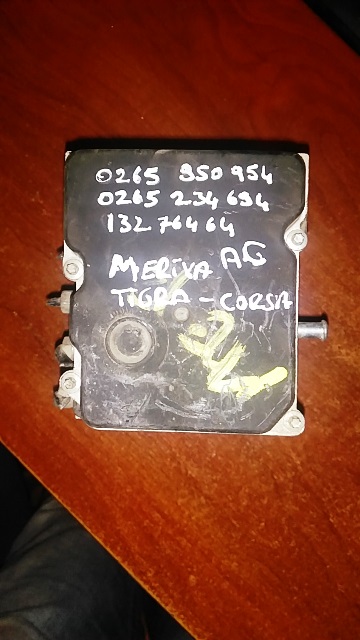 0265 950 954
0265 234 694
132 76464
MERIVA AG
TIGRA - CORSA